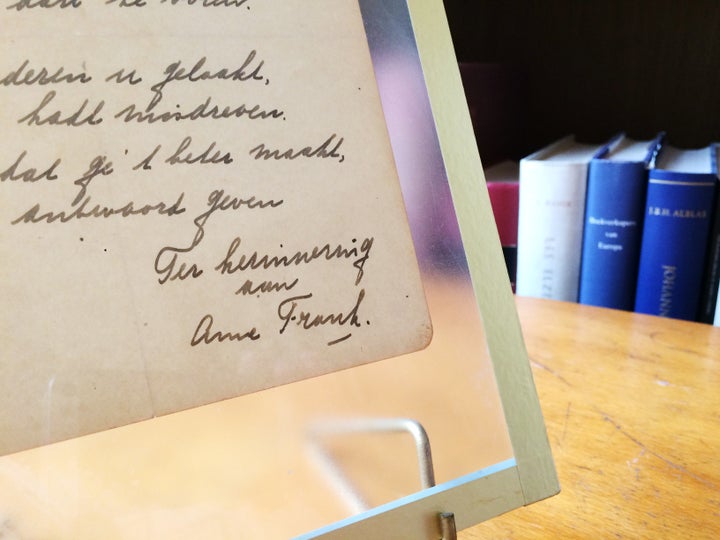 te
deren u gelaakt,
hadt misdreven.
dat ge 't beter maakt,
antwoord geven
Ter herinnering
aan
Anne Frank.
Boekverkopers
van
Europa
J.B.H. ALBLAS
JOHANN